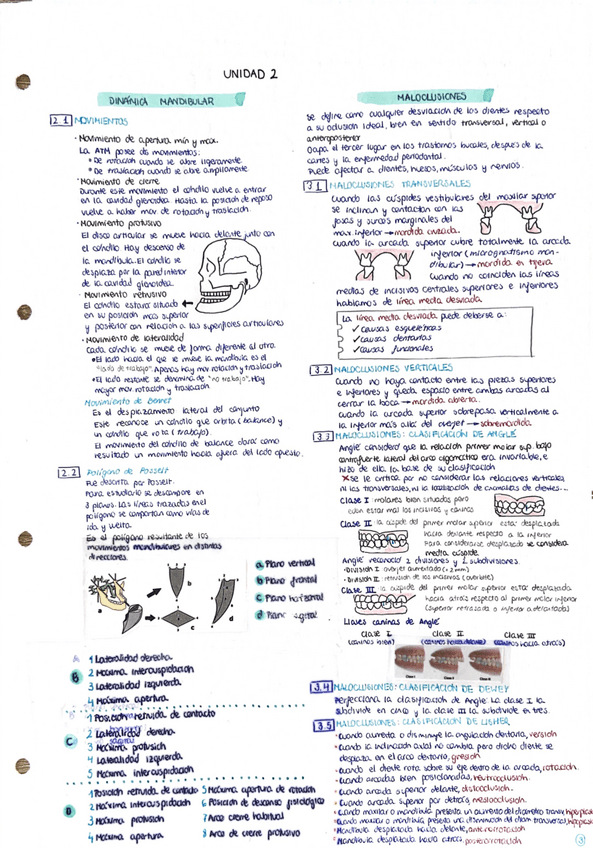 UNIDAD 2
DINÁMICA MANDIBULAR
2.1 MOVIMIENTOS
· Movimiento de apertura mín y max.
La ATM posee dos movimientos:
• De rotación cuando se abre ligeramente.
• De traslación cuando se abre ampliamente.
· Movimiento de cierre
Durante este movimiento el cóndilo vuelve a entrar
en la cavidad glenoidea. Hasta la posición de reposo
vuelve a haber mov de rotación y traslación.
· Movimiento protusivo
El disco articular se mueve hacia delante junto con
el cóndilo. Hay descenso de
la mandíbula. El cóndilo se
desplaza por la pared interior
de la cavidad glenoidea.
· Movimiento retrusivo
El cóndilo estará situado
en su posición más superior
y posterior con relación a las superficies articulares
· Movimiento de lateralidad
Cada cóndilo se mueve de forma diferente al otro.
• El lado hacia el que se mueve la mandíbula es el
"lado de trabajo". Apenas hay mov rotación y traslación
• El lado restante se denomina de "no trabajo". Hay
mayor mov rotación y traslación
Movimiento de Bennet
Es el desplazamiento lateral del conjunto
Este reconoce un cóndilo que orbita (balance) y
un cóndilo que rota (trabajo).
El movimiento del cóndilo de balance dará como
resultado un movimiento hacia afuera del lado opuesto.
2.2 Polígono de Posselt
Fue descrita por Posselt.
Para estudiarlo se descompone en
3 planos. Las líneas trazadas en el
polígono se comportan como vías de
ida y vuelta.
Es el polígono resultante de los
movimientos mandibulares en distintas
direcciones.
a. Plano vertical
b Plano frontal
c Plano horizontal
d Plano sagital
b
c
d
B
1 Lateralidad derecha
2 Máxima intercuspidación
3 Lateralidad izquierda
4 Máxima apertura
C
1 Posición retruida de contacto
2 Lateralidad derecha
3 Máxima protusión
4 Lateralidad izquierda
5 Máxima intercuspidación
D
1 Posición retruida de contacto 5 Máxima apertura de rotación
2 Máxima intercuspidación 6 Posición de descanso fisiológico
3 Máxima protusión 7 Arco cierre habitual
4 Máxima apertura 8 Arco de cierre protusivo
MALOCLUSIONES
Se define como cualquier desviación de los dientes respecto
a su oclusión ideal, bien en sentido transversal, vertical o
anteroposterior
Ocupa el tercer lugar en los trastornos bucales, después de la
caries y la enfermedad periodontal.
Puede afectar a dientes, huesos, músculos y nervios.
3.1 MALOCLUSIONES TRANSVERSALES
Cuando las cúspides vestibulares del maxilar superior
se inclinan y contactan con las
fosas y surcos marginales del
max. inferior → mordida cruzada.
Cuando la arcada superior cubre totalmente la arcada
inferior (micrognatismo man-
dibular) → mordida en tijera
Cuando no coinciden las líneas
medias de incisivos centrales superiores e inferiores
hablamos de línea media desviada
La línea media desviada puede deberse a:
✓ causas esqueléticas
✓ causas dentarias
✓ causas funcionales
3.2 MALOCLUSIONES VERTICALES
Cuando no haya contacto entre las piezas superiores
e inferiores y queda espacio entre ambas arcadas al
cerrar la boca → mordida abierta.
Cuando la arcada superior sobrepasa verticalmente a
la inferior más allá del overjet → sobremordida
3.3 MALOCLUSIONES: CLASIFICACIÓN DE ANGLE
Angle consideró que la relación primer molar sup. bajo
contrafuerte lateral del arco cigomático era invariable, e
hizo de ella la base de su clasificación
× Se le critica por no considerar las relaciones verticales
ni las transversales, ni la localización de anomalías de dientes...
Clase I: molares bien situados pero
están mal los incisivos y caninos
Clase II: la cúspide del primer molar superior está desplazada
hacia delante respecto a la inferior
Para considerarse desplazado se considera
media cúspide.
Angle reconoció 2 divisiones y 2 subdivisiones.
· DIVISIÓN I: overjet aumentado (>2mm)
· DIVISIÓN II: retrusión de los incisivos (overbite)
Clase III: la cúspide del primer molar superior está desplazada
hacia atrás respecto al primer molar inferior
(superior retrasado o inferior adelantado)
Llaves caninas de Angle
Clase I Clase II Clase III
(caninos bien) (caninos hacia delante) (caninos hacia atrás)
Clase I Clase II Clase III
3.4 MALOCLUSIONES: CLASIFICACIÓN DE DEWEY
Perfecciona la clasificación de Angle. La clase I la
subdivide en cinco y la clase III la subdivide en tres.
3.5 MALOCLUSIONES: CLASIFICACIÓN DE LISHER
· Cuando aumenta o disminuye la angulación dentaria, versión
· Cuando la inclinación axial no cambia pero dicho diente se
desplaza en el arco dentario, gresión
· Cuando el diente rota sobre su eje dentro de la arcada, rotación.
· Cuando arcadas bien posicionadas, neutroclusión.
· Cuando arcada superior delante, distoclusión.
· Cuando arcada superior por detrás, mesioclusión.
· Cuando maxilar o mandíbula presenta un aumento del diámetro transv,
· Cuando maxilar o mandíbula presenta una disminución del diam transversal,
· Mandíbula desplazada hacia delante, anterorrotación
· Mandíbula desplazada hacia atrás, posterorrotación
3